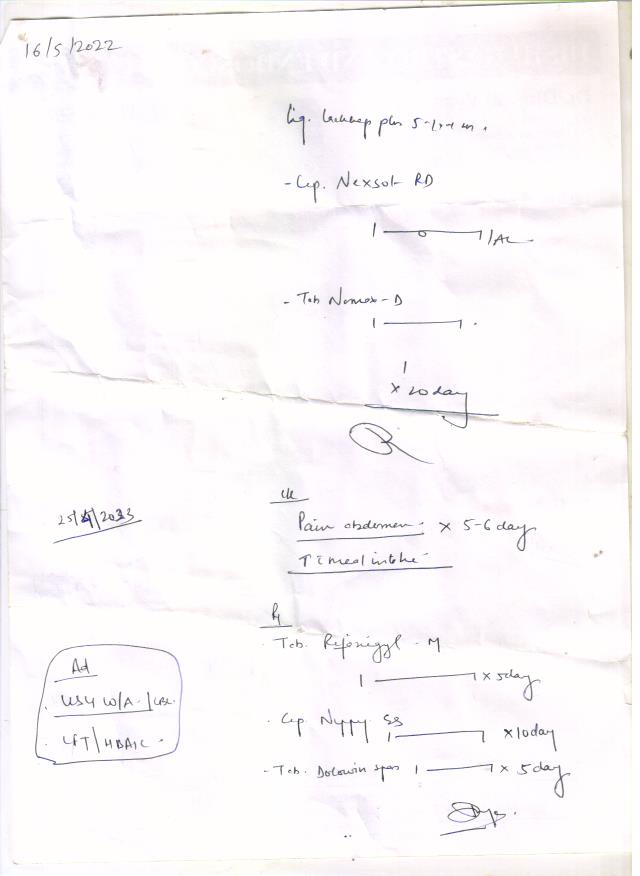 16/5/2022
Liq. plus 5-
- Cap. Nexsol RD
1 — 0 — 1 / AC
- Tab Nomox-D
1 — 1
1
x 20 day
25/4/2023
c/c
Pain abdomen x 5-6 day
↑ c̄ meal intake
Rx
Tab. - M
1 — 1 x 5 day
Cap. Nyppy
1 — 1 x 10 day
- Tab. Dolowin spas 1 — 1 x 5 day
Ad
USG W/A / CBC
LFT / HBA1C